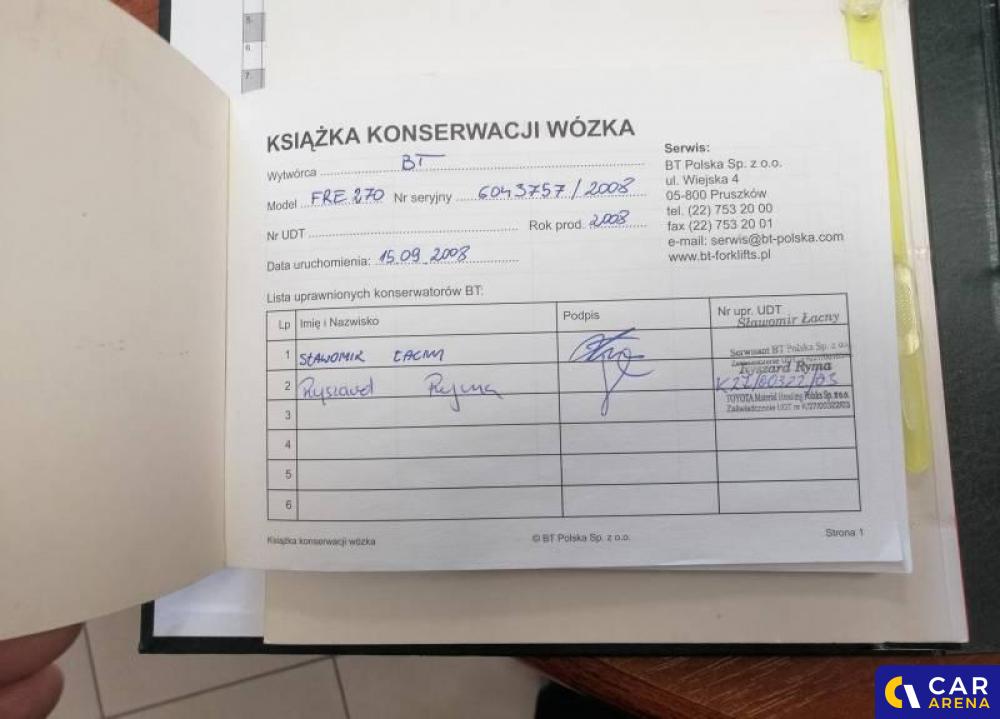 5.
6.
7.
KSIĄŻKA KONSERWACJI WÓZKA
Wytwórca BT
Model FRE 270 Nr seryjny 6043757/2008
Nr UDT Rok prod. 2008
Data uruchomienia: 15.09.2008
Serwis:
BT Polska Sp. z o.o.
ul. Wiejska 4
05-800 Pruszków
tel. (22) 753 20 00
fax (22) 753 20 01
e-mail: serwis@bt-polska.com
www.bt-forklifts.pl
Lista uprawnionych konserwatorów BT:
Lp Imię i Nazwisko Podpis Nr upr. UDT
Sławomir Łacny
1 SŁAWOMIR ŁACNY
Serwisant BT Polska Sp. z o.o.
Ryszard Ryma
2 Ryszard Ryma K27/00322/03
TOYOTA Material Handling Polska Sp. z o.o.
Zaświadczenie UDT nr K/27/00322/03
3
4
5
6
Książka konserwacji wózka © BT Polska Sp. z o.o. Strona 1
CAR
ARENA